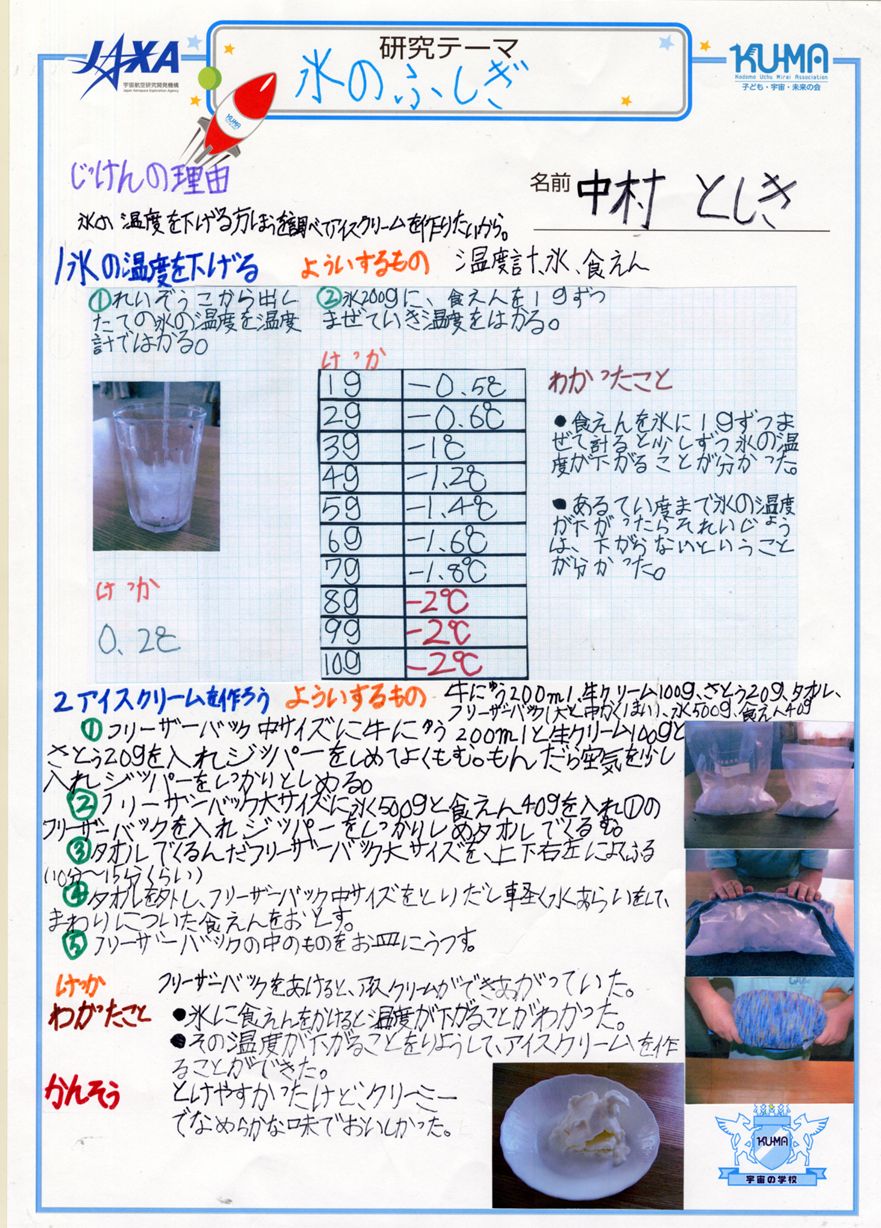 JAXA
宇宙航空研究開発機構
Japan Aerospace Exploration Agency
研究テーマ
氷のふしぎ
KUMA
KU-MA
Kodomo Uchu Mirai Association
子ども・宇宙・未来の会
じっけんの理由
名前 中村 としき
氷の温度を下げる方ほうを調べてアイスクリームを作りたいから。
1氷の温度を下げる
よういするもの 温度計、氷、食えん
①れいぞうこから出し
たての氷の温度を温度
計ではかる。
けっか
0.2℃
②氷200gに、食えんを1gずつ
まぜていき温度をはかる。
けっか
1g -0.5℃
2g -0.6℃
3g -1℃
4g -1.2℃
5g -1.4℃
6g -1.6℃
7g -1.8℃
8g -2℃
9g -2℃
10g -2℃
わかったこと
●食えんを氷に1gずつま
ぜて計ると少しずつ氷の温
度が下がることが分かった。
●あるてい度まで氷の温度
が下がったらそれいじょう
は、下がらないということ
が分かった。
2アイスクリームを作ろう よういするもの
牛にゅう200ml、生クリーム100g、さとう20g、タオル、
フリーザーバック(大と中かくい1まい)、氷500g、食えん40g
①フリーザーバック中サイズに牛にゅう200mlと生クリーム100gと
さとう20gを入れジッパーをしめてよくもむ。もんだら空気を少し
入れジッパーをしっかりとしめる。
②フリーザーバック大サイズに氷500gと食えん40gを入れ①の
フリーザーバックを入れジッパーをしっかりしめタオルでくるむ。
③タオルでくるんだフリーザーバック大サイズを、上下右左によくふる
(10分〜15分くらい)
④タオルを外し、フリーザーバック中サイズをとりだし軽く水あらいをして、
まわりについた食えんをおとす。
⑤フリーザーバックの中のものをお皿にうつす。
けっか フリーザーバックをあけると、アイスクリームができあがっていた。
わかったこと ●氷に食えんをかけると温度が下がることがわかった。
●その温度が下がることをりようして、アイスクリームを作
ることができた。
かんそう とけやすかったけど、クリーミー
でなめらかな味でおいしかった。
KU-MA
宇宙の学校